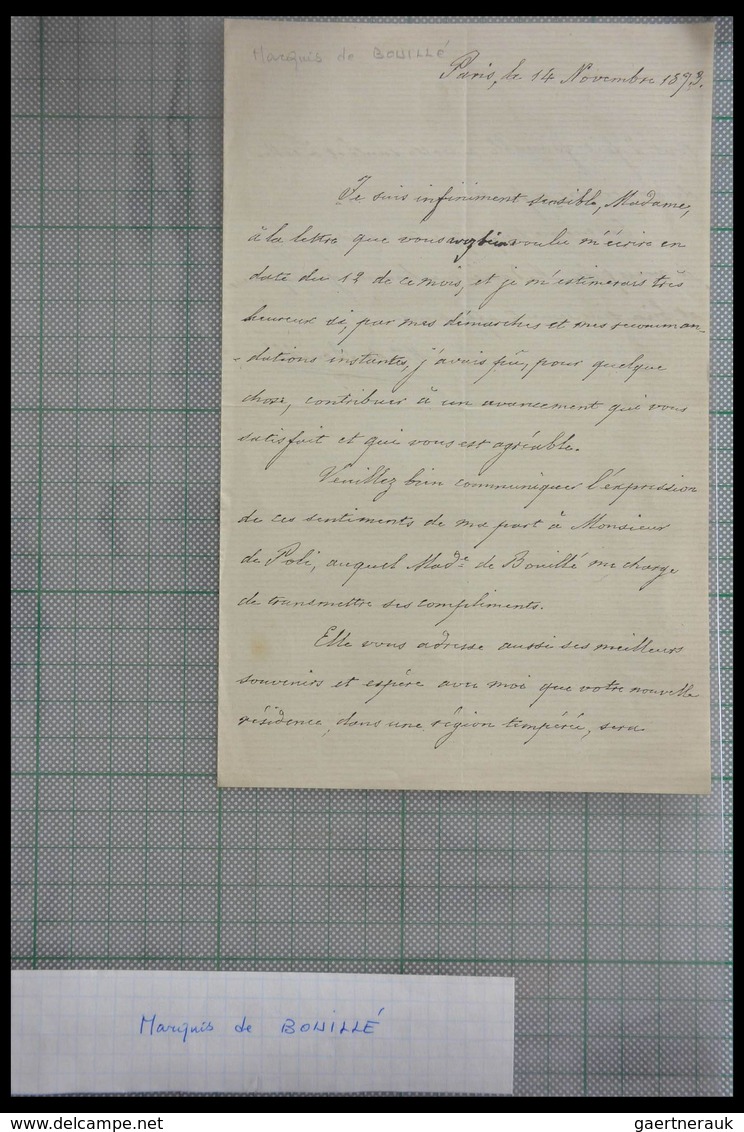 Marquis de BOUILLÉ
Paris, le 14 Novembre 1893.
Je suis infiniment sensible, Madame,
à la lettre que vous avez bien voulu m'écrire en
date du 12 de ce mois, et je m'estimerais très
heureux si, par mes démarches et mes recomman-
-dations instantes, j'avais pû, pour quelque
chose, contribuer à un avancement qui vous
satisfait et qui vous est agréable.
Veuillez bien communiquer l'expression
de ces sentiments de ma part à Monsieur
de Poli, auquel Made de Bouillé me charge
de transmettre ses compliments.
Elle vous adresse aussi ses meilleurs
souvenirs et espère avec moi que votre nouvelle
résidence, dans une région tempérée, sera
Marquis de BOUILLÉ
gaertnerauk